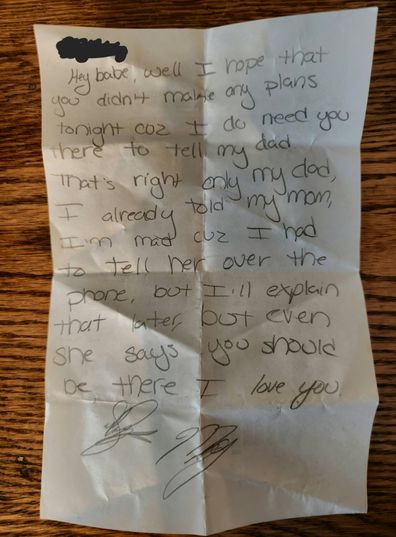 Hey babe, well I hope that
you didn't make any plans
tonight coz I do need you
there to tell my dad
That's right only my dad,
I already told my mom,
I'm mad cuz I had
to tell her over the
phone, but I'll explain
that later, but even
she says you should
be there I love you.